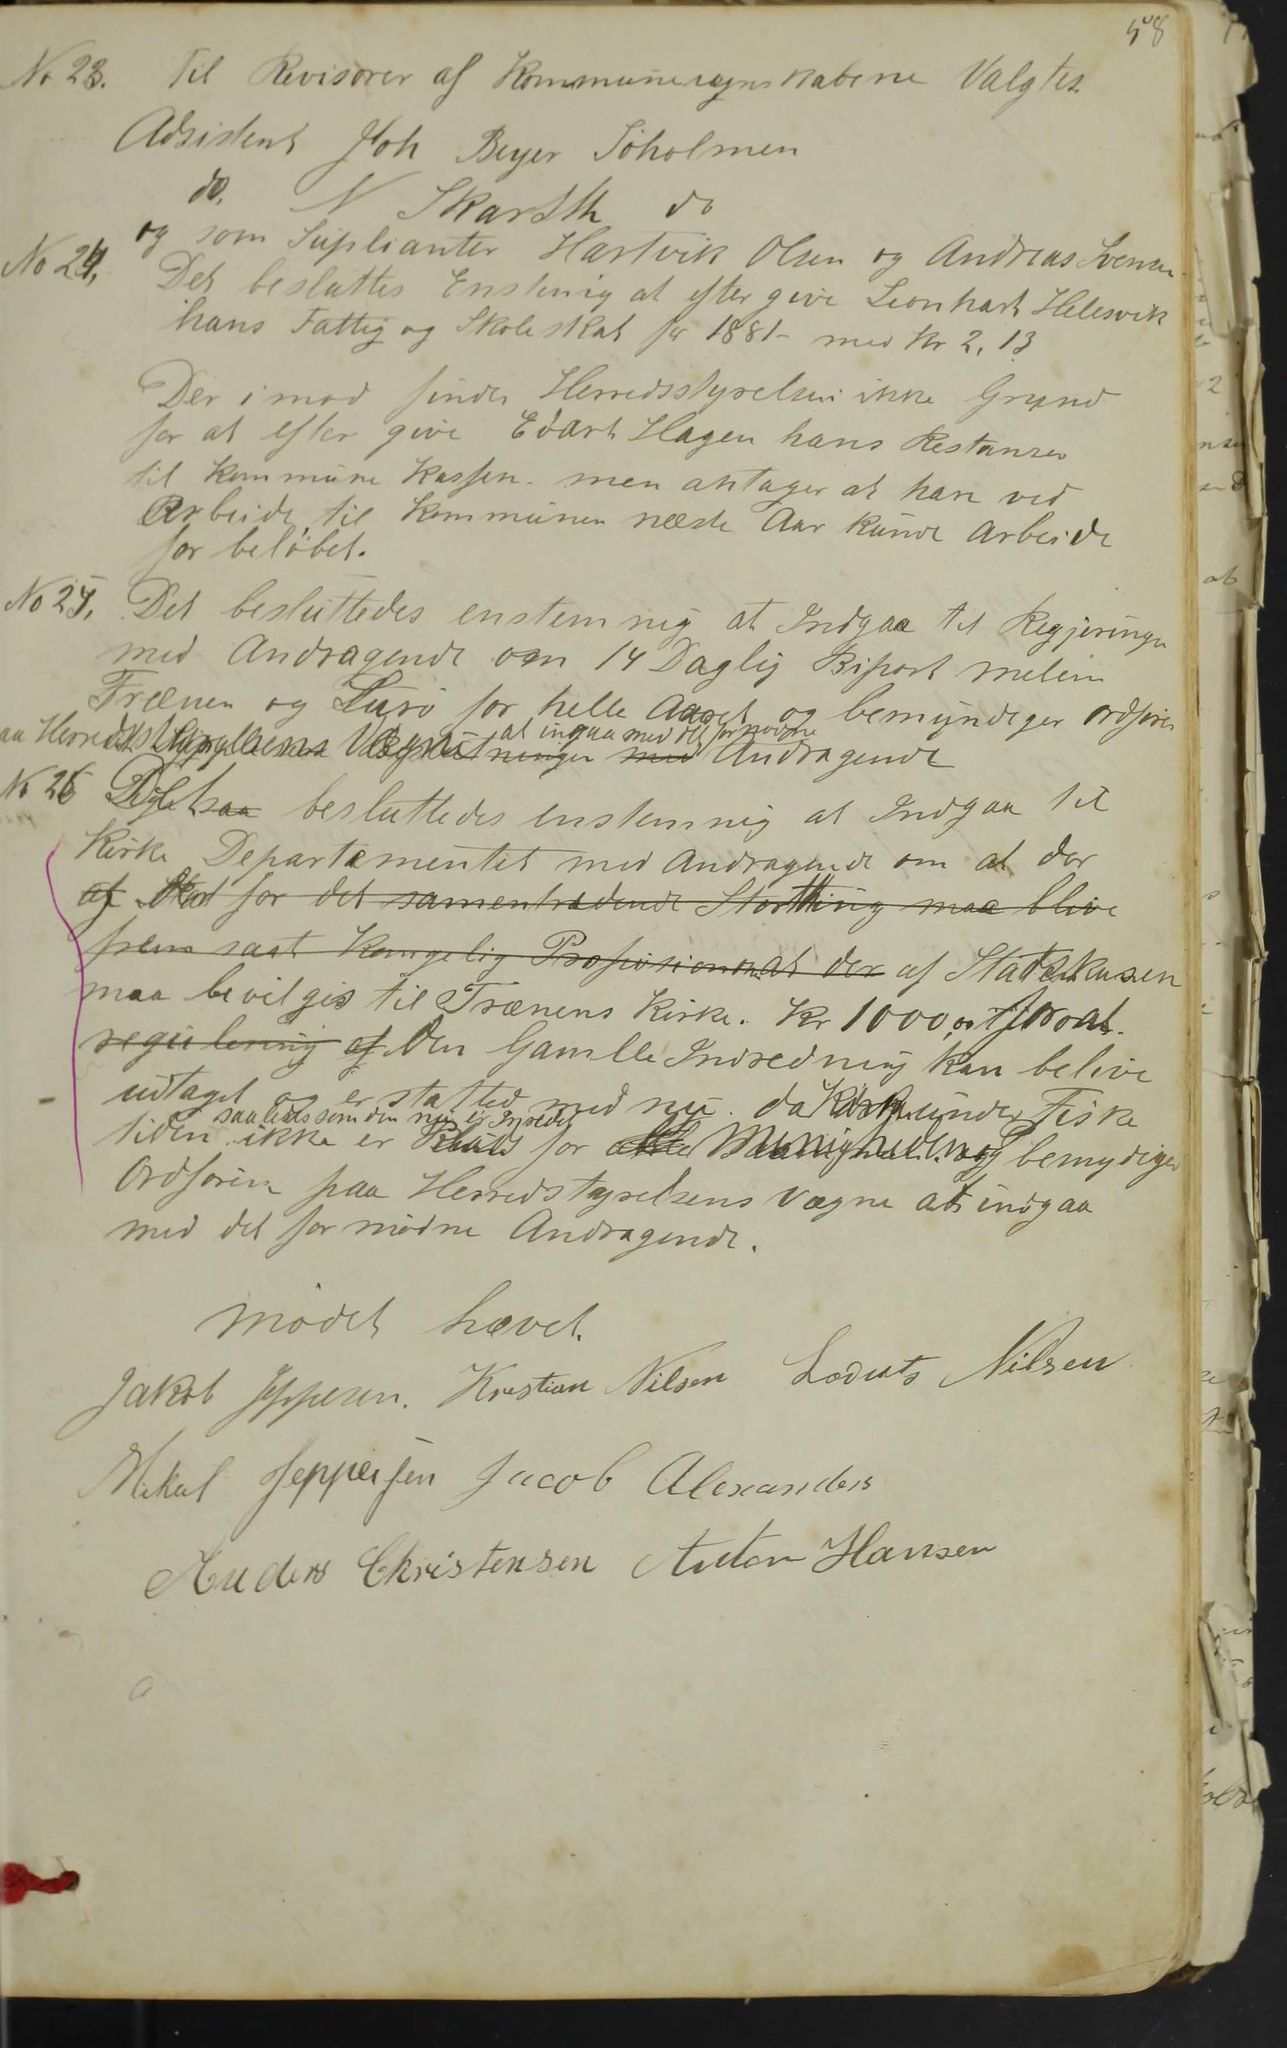 58
No 23. Til Revisorer af Kommuneregnskaberne Valgtes
Adsistent Joh Beyer Söholmen
do. N Skarsth do
og som Suplianter Hartvik Olsen og Andreas Svensen
No 24, Det besluttes Enstemig at efter give Leonhart Helesvik
hans Fattig og Skoleskat for 1881 - med Kr 2,13
Der imod finder Herredsstyrelsen ikke Grund
for at efter give Edart Hagen hans Restanser
til Kommune Kassen. men antager at han ved
Arbeide til Kommunen næste Aar kunde Arbeide
for beløbet.
No 25, Det besluttedes enstemnig at Indgaa til Regjeringen
med Andragende om 14 Daglig Biport melem
Trænen og Lurö for helle Aaret og bemyndiger ordfören
paa Herredstyrelsens Vægne at ingaa med det fornødne Andragende
No 26 Det besluttedes enstemnig at Indgaa til
Kirke Departementet med Andragende om at der
af for det samentrædende Storthing maa blive
frem sadt Kongelig Proposision om at der af Statskasen
maa bevilges til Trænens Kirke. Kr 1000, for at
regulering af den Gamlle Indredning kan belive
udtaget og erstatted med nu. da Kirken under Fiske
tiden saaledes som den nu er Inredet ikke er Plads for Menigheden og bemydiger
Ordforen paa Herredstyrelsens Vægne at indgaa
med det fornødne Andragende.
Mödet hævet.
Jakob Jeppesen. Kristian Nilsen Lodvits Nilsen
Mikal Jeppesen Jacob Alexanders
Anders Christensen Anton Hansen